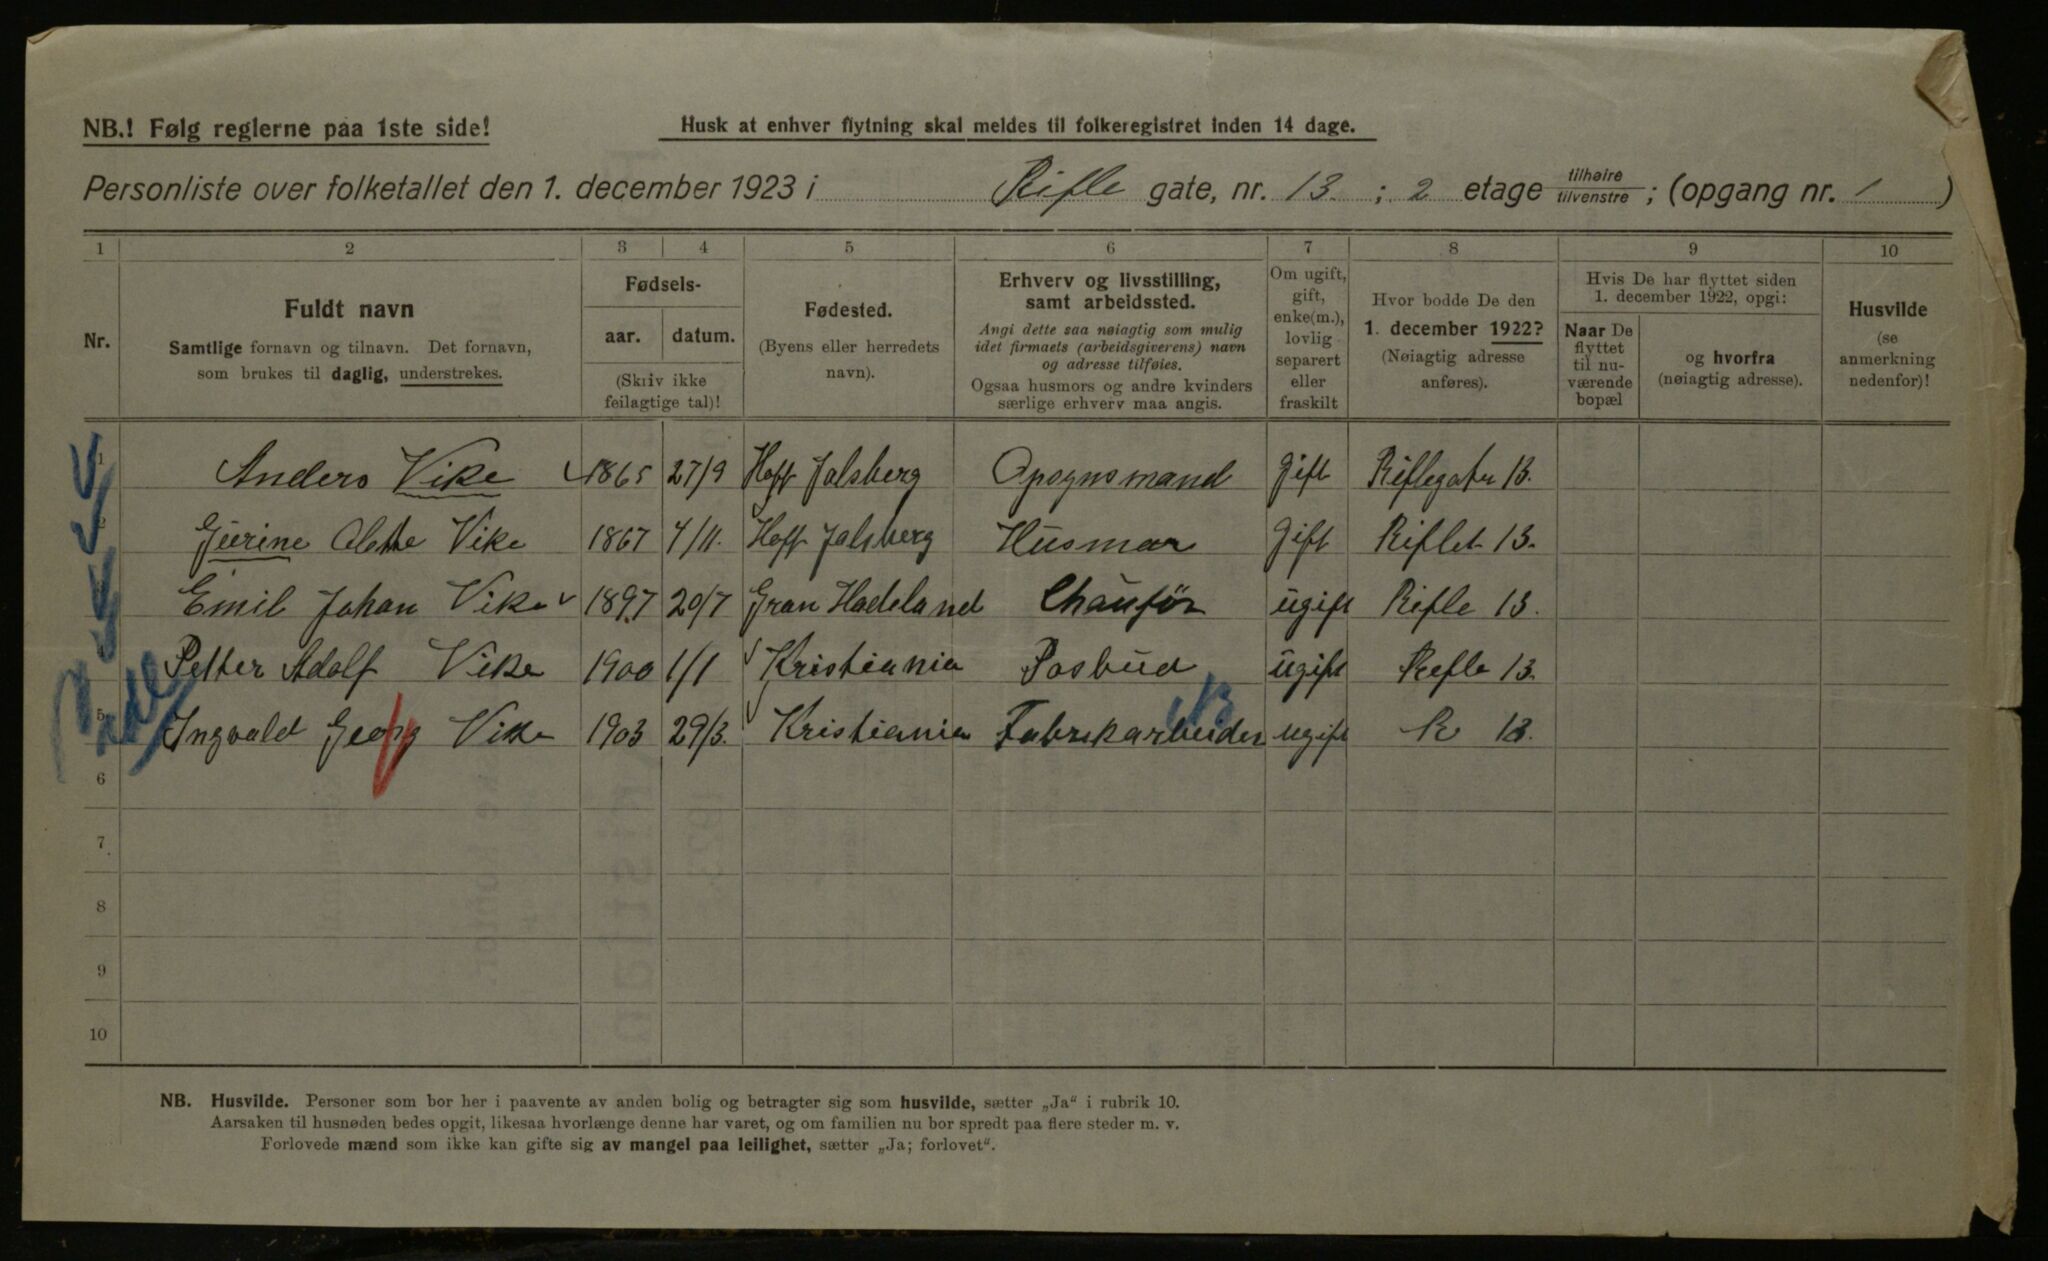 NB.! Følg reglerne paa 1ste side!
Husk at enhver flytning skal meldes til folkeregistret inden 14 dage.
Personliste over folketallet den 1. december 1923 i Rifle gate, nr. 13. ; 2 etage tilhøire tilvenstre ; (opgang nr. 1 )
1 2 3 4 5 6 7 8 9 10
Nr.
Fuldt navn
Samtlige fornavn og tilnavn. Det fornavn,
som brukes til daglig, understrekes.
Fødsels-
aar. datum.
(Skriv ikke
feilagtige tal)!
Fødested.
(Byens eller herredets
navn).
Erhverv og livsstilling,
samt arbeidssted.
Angi dette saa nøiagtig som mulig
idet firmaets (arbeidsgiverens) navn
og adresse tilføies.
Ogsaa husmors og andre kvinders
særlige erhverv maa angis.
Om ugift,
gift,
enke(m.),
lovlig
separert
eller
fraskilt
Hvor bodde De den
1. december 1922?
(Nøiagtig adresse
anføres).
Hvis De har flyttet siden
1. december 1922, opgi:
Naar De
flyttet
til nu-
værende
bopæl
og hvorfra
(nøiagtig adresse).
Husvilde
(se
anmerkning
nedenfor)!
1 Anders Vike 1865 27/9 Hoff Jalsberg Opognsmand Gift Riflegaten 13.
2 Gurine Vike 1867 4/11. Hoff Jalsberg Husmor Gift Riflet 13.
3 Emil Johan Vike 1897 20/7 Gran Hadeland Chauför ugift Rifle 13.
4 Petter Adolf Vike 1900 1/1 Kristiania Posbud ugift Rifle 13.
5 Ingvald Georg Vike 1903 29/3. Kristiania Fabrikarbeider ugift R 13.
6
7
8
9
10
NB. Husvilde. Personer som bor her i paavente av anden bolig og betragter sig som husvilde, sætter „Ja“ i rubrik 10.
Aarsaken til husnøden bedes opgit, likesaa hvorlænge denne har varet, og om familien nu bor spredt paa flere steder m. v.
Forlovede mænd som ikke kan gifte sig av mangel paa leilighet, sætter „Ja; forlovet“.